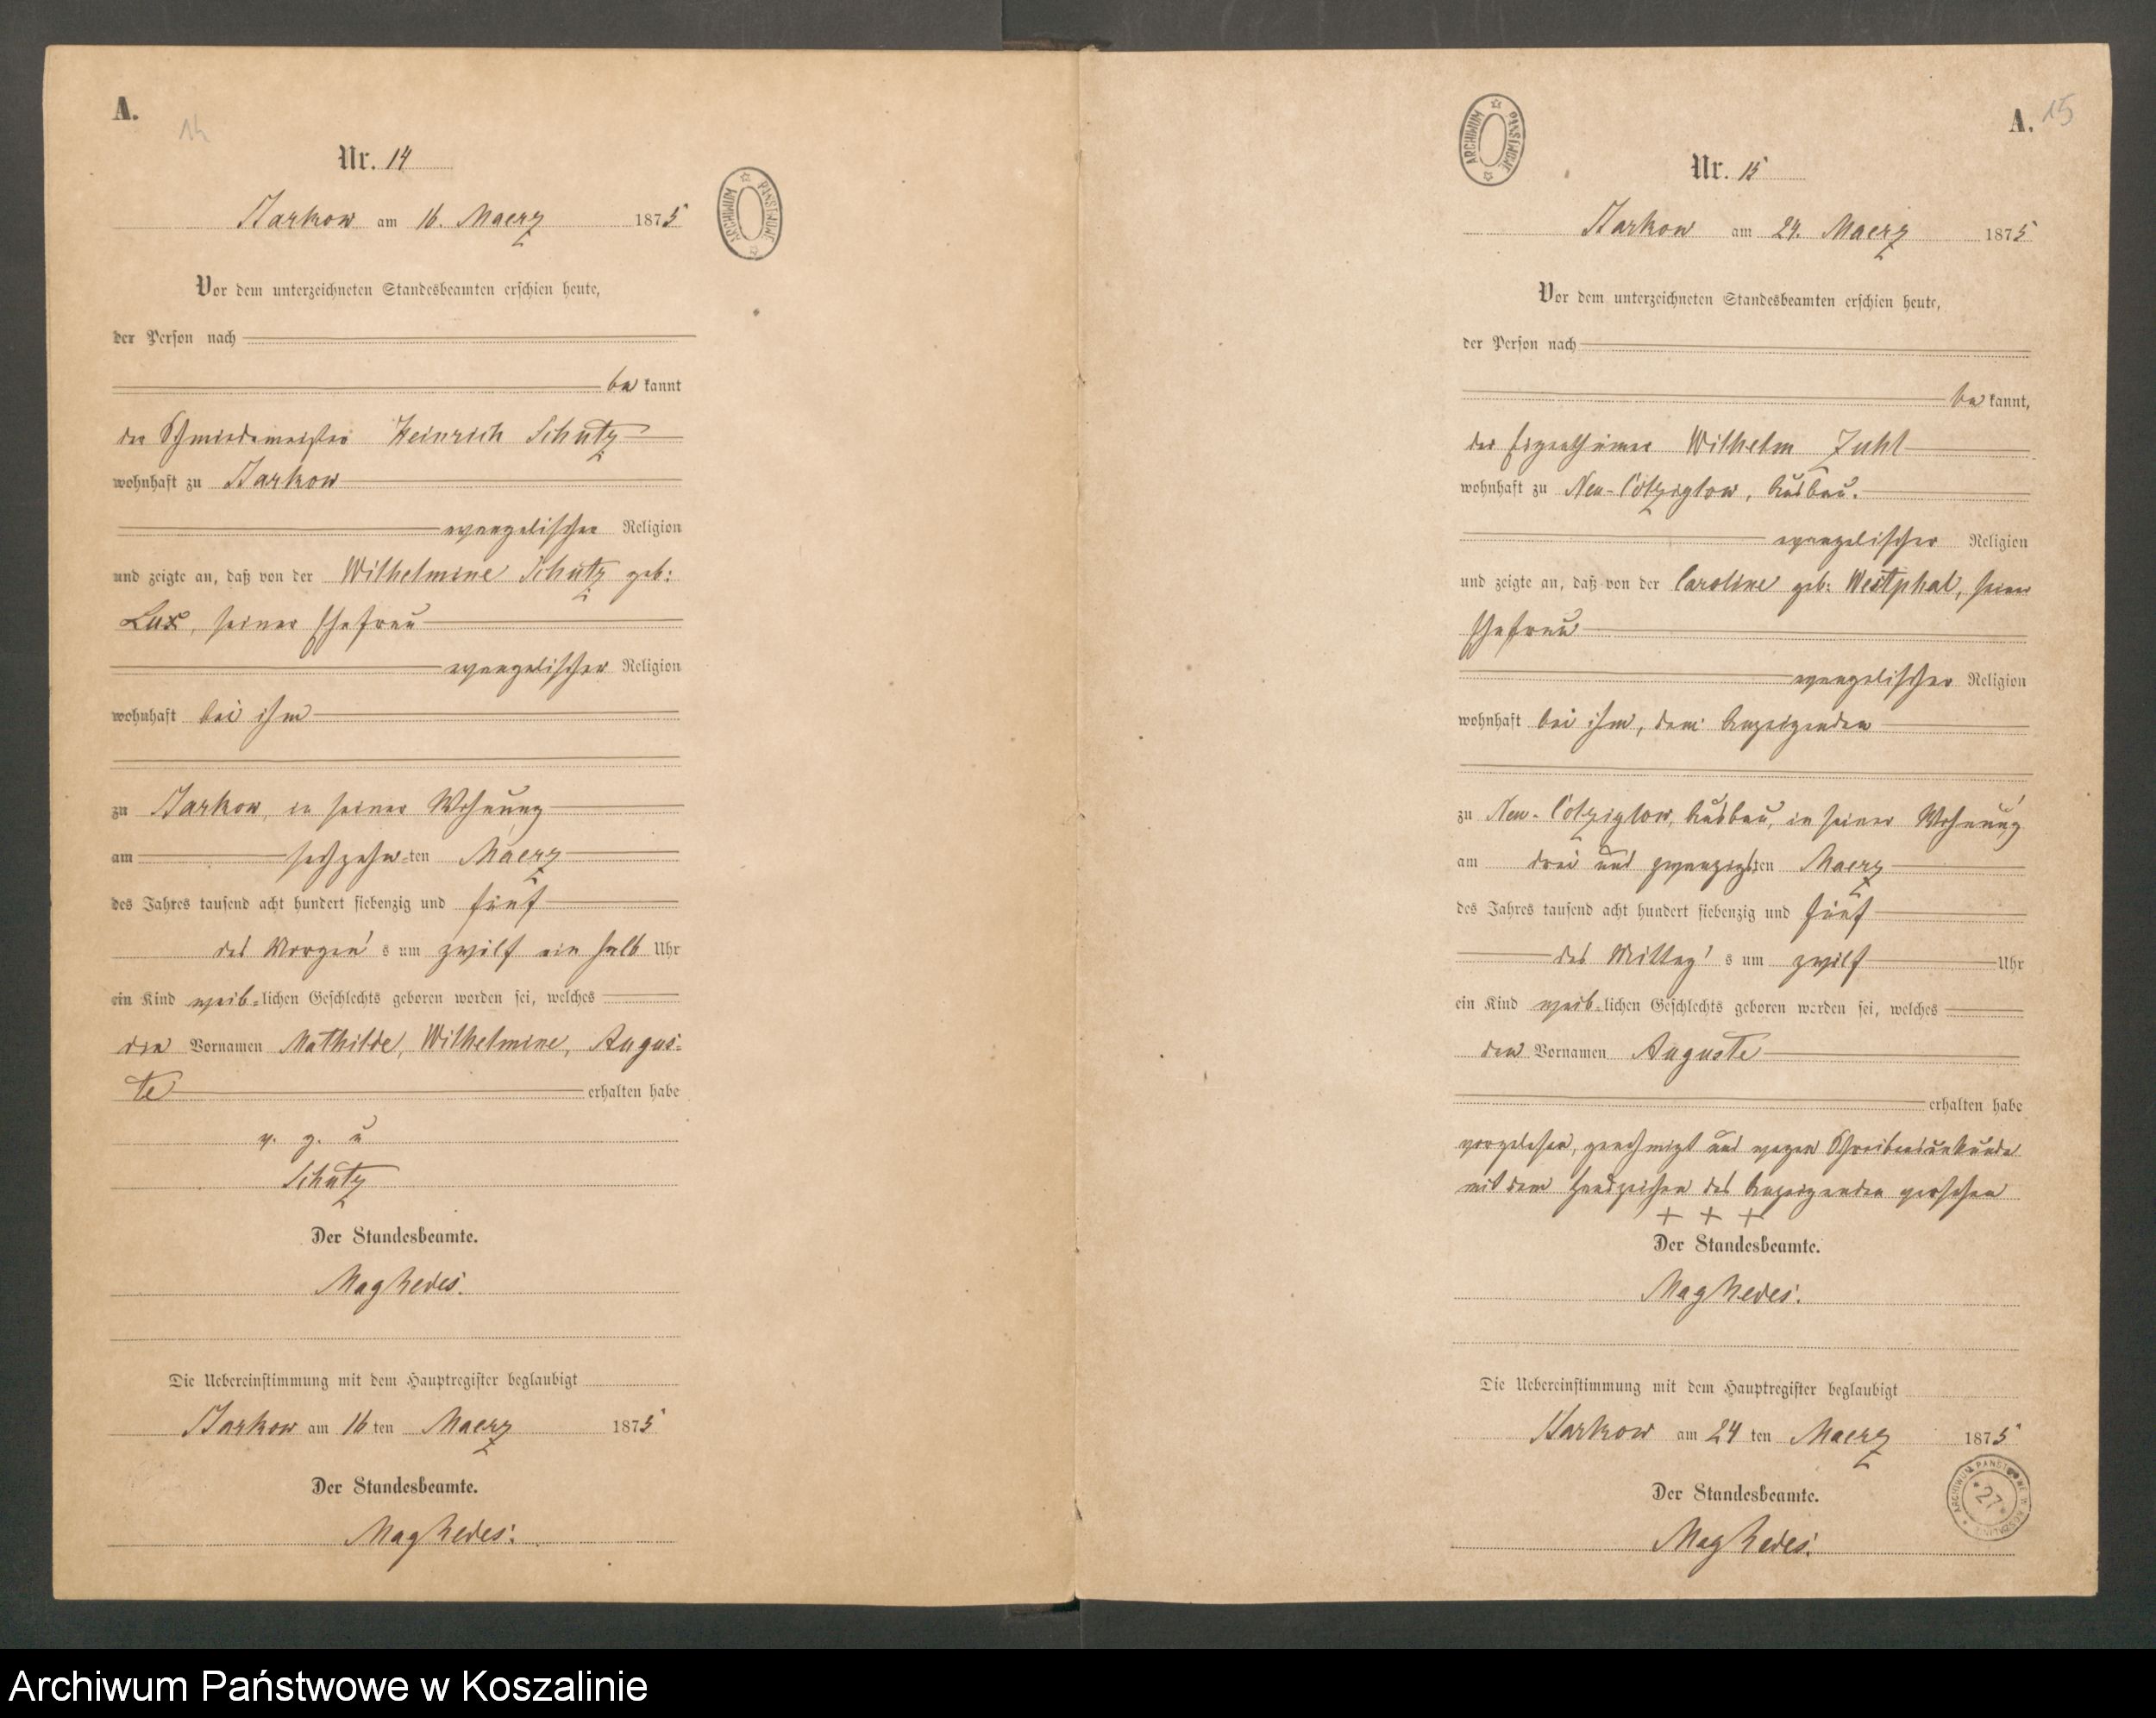 A.
14
Nr. 14
ARCHIWUM PAŃSTWOWE
Barkow am 16. Maerz 1875
Vor dem unterzeichneten Standesbeamten erschien heute,
der Person nach
be kannt
der Schmiedemeister Heinrich Schutz
wohnhaft zu Barkow
evangelischer Religion
und zeigte an, daß von der Wilhelmine Schutz geb:
Lux, seiner Ehefrau
evangelischer Religion
wohnhaft bei ihm
zu Barkow, in seiner Wohnung
am sechzehn-ten Maerz
des Jahres tausend acht hundert siebenzig und fünf
des Morgen's um zwölf ein halb Uhr
ein Kind weib-lichen Geschlechts geboren worden sei, welches
den Vornamen Mathilde, Wilhelmine, Augus-
te erhalten habe
v. g. u
Schutz
Der Standesbeamte.
Die Uebereinstimmung mit dem Hauptregister beglaubigt
Barkow am 16 ten Maerz 1875
Der Standesbeamte.
A.
15
ARCHIWUM PAŃSTWOWE
Nr. 15
Barkow am 24. Maerz 1875
Vor dem unterzeichneten Standesbeamten erschien heute,
der Person nach
be kannt,
der Eigenthümer Wilhelm Zuhl
wohnhaft zu Neu-Cölpiglow, Ausbau.
evangelischer Religion
und zeigte an, daß von der Caroline geb: Westphal, seiner
Ehefrau
evangelischer Religion
wohnhaft bei ihm, dem Anzeigenden
zu Neu-Colpiglow, Ausbau, in seiner Wohnung
am drei und zwanzigsten Maerz
des Jahres tausend acht hundert siebenzig und fünf
des Mittag's um zwölf Uhr
ein Kind weib-lichen Geschlechts geboren worden sei, welches
den Vornamen Auguste
erhalten habe
vorgelesen, genehmigt und wegen Schreibensunkunde
mit dem Handzeichen des Anzeigenden versehen
+ + +
Der Standesbeamte.
Die Uebereinstimmung mit dem Hauptregister beglaubigt
Barkow am 24 ten Maerz 1875
Der Standesbeamte.
27
Archiwum Państwowe w Koszalinie